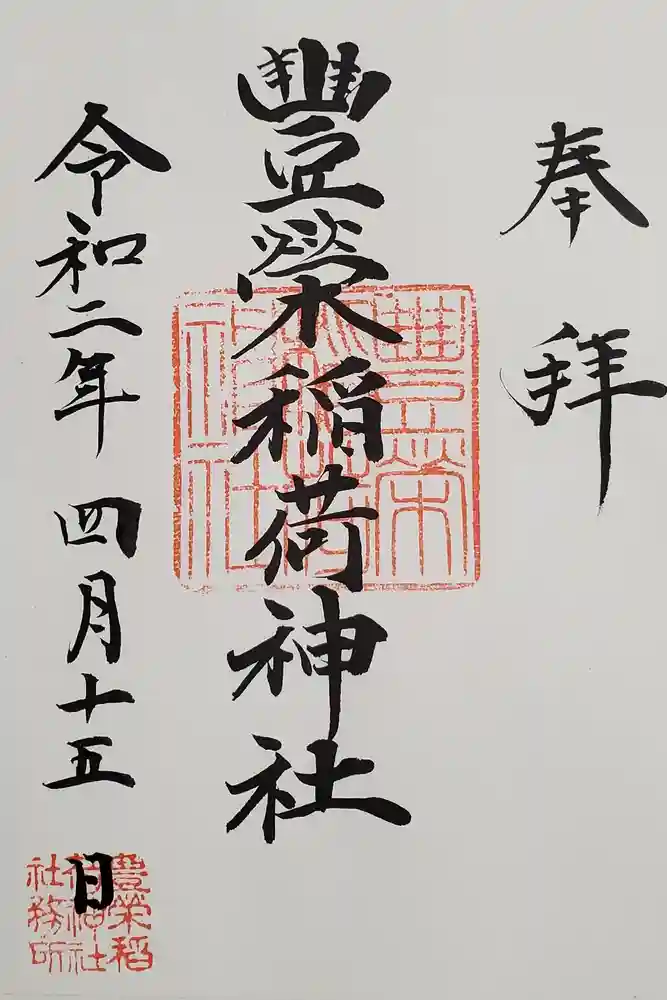 奉拝
豐榮稲荷神社
豊榮稲荷神社
令和二年 四月十五日
豊榮稲荷神社社務所